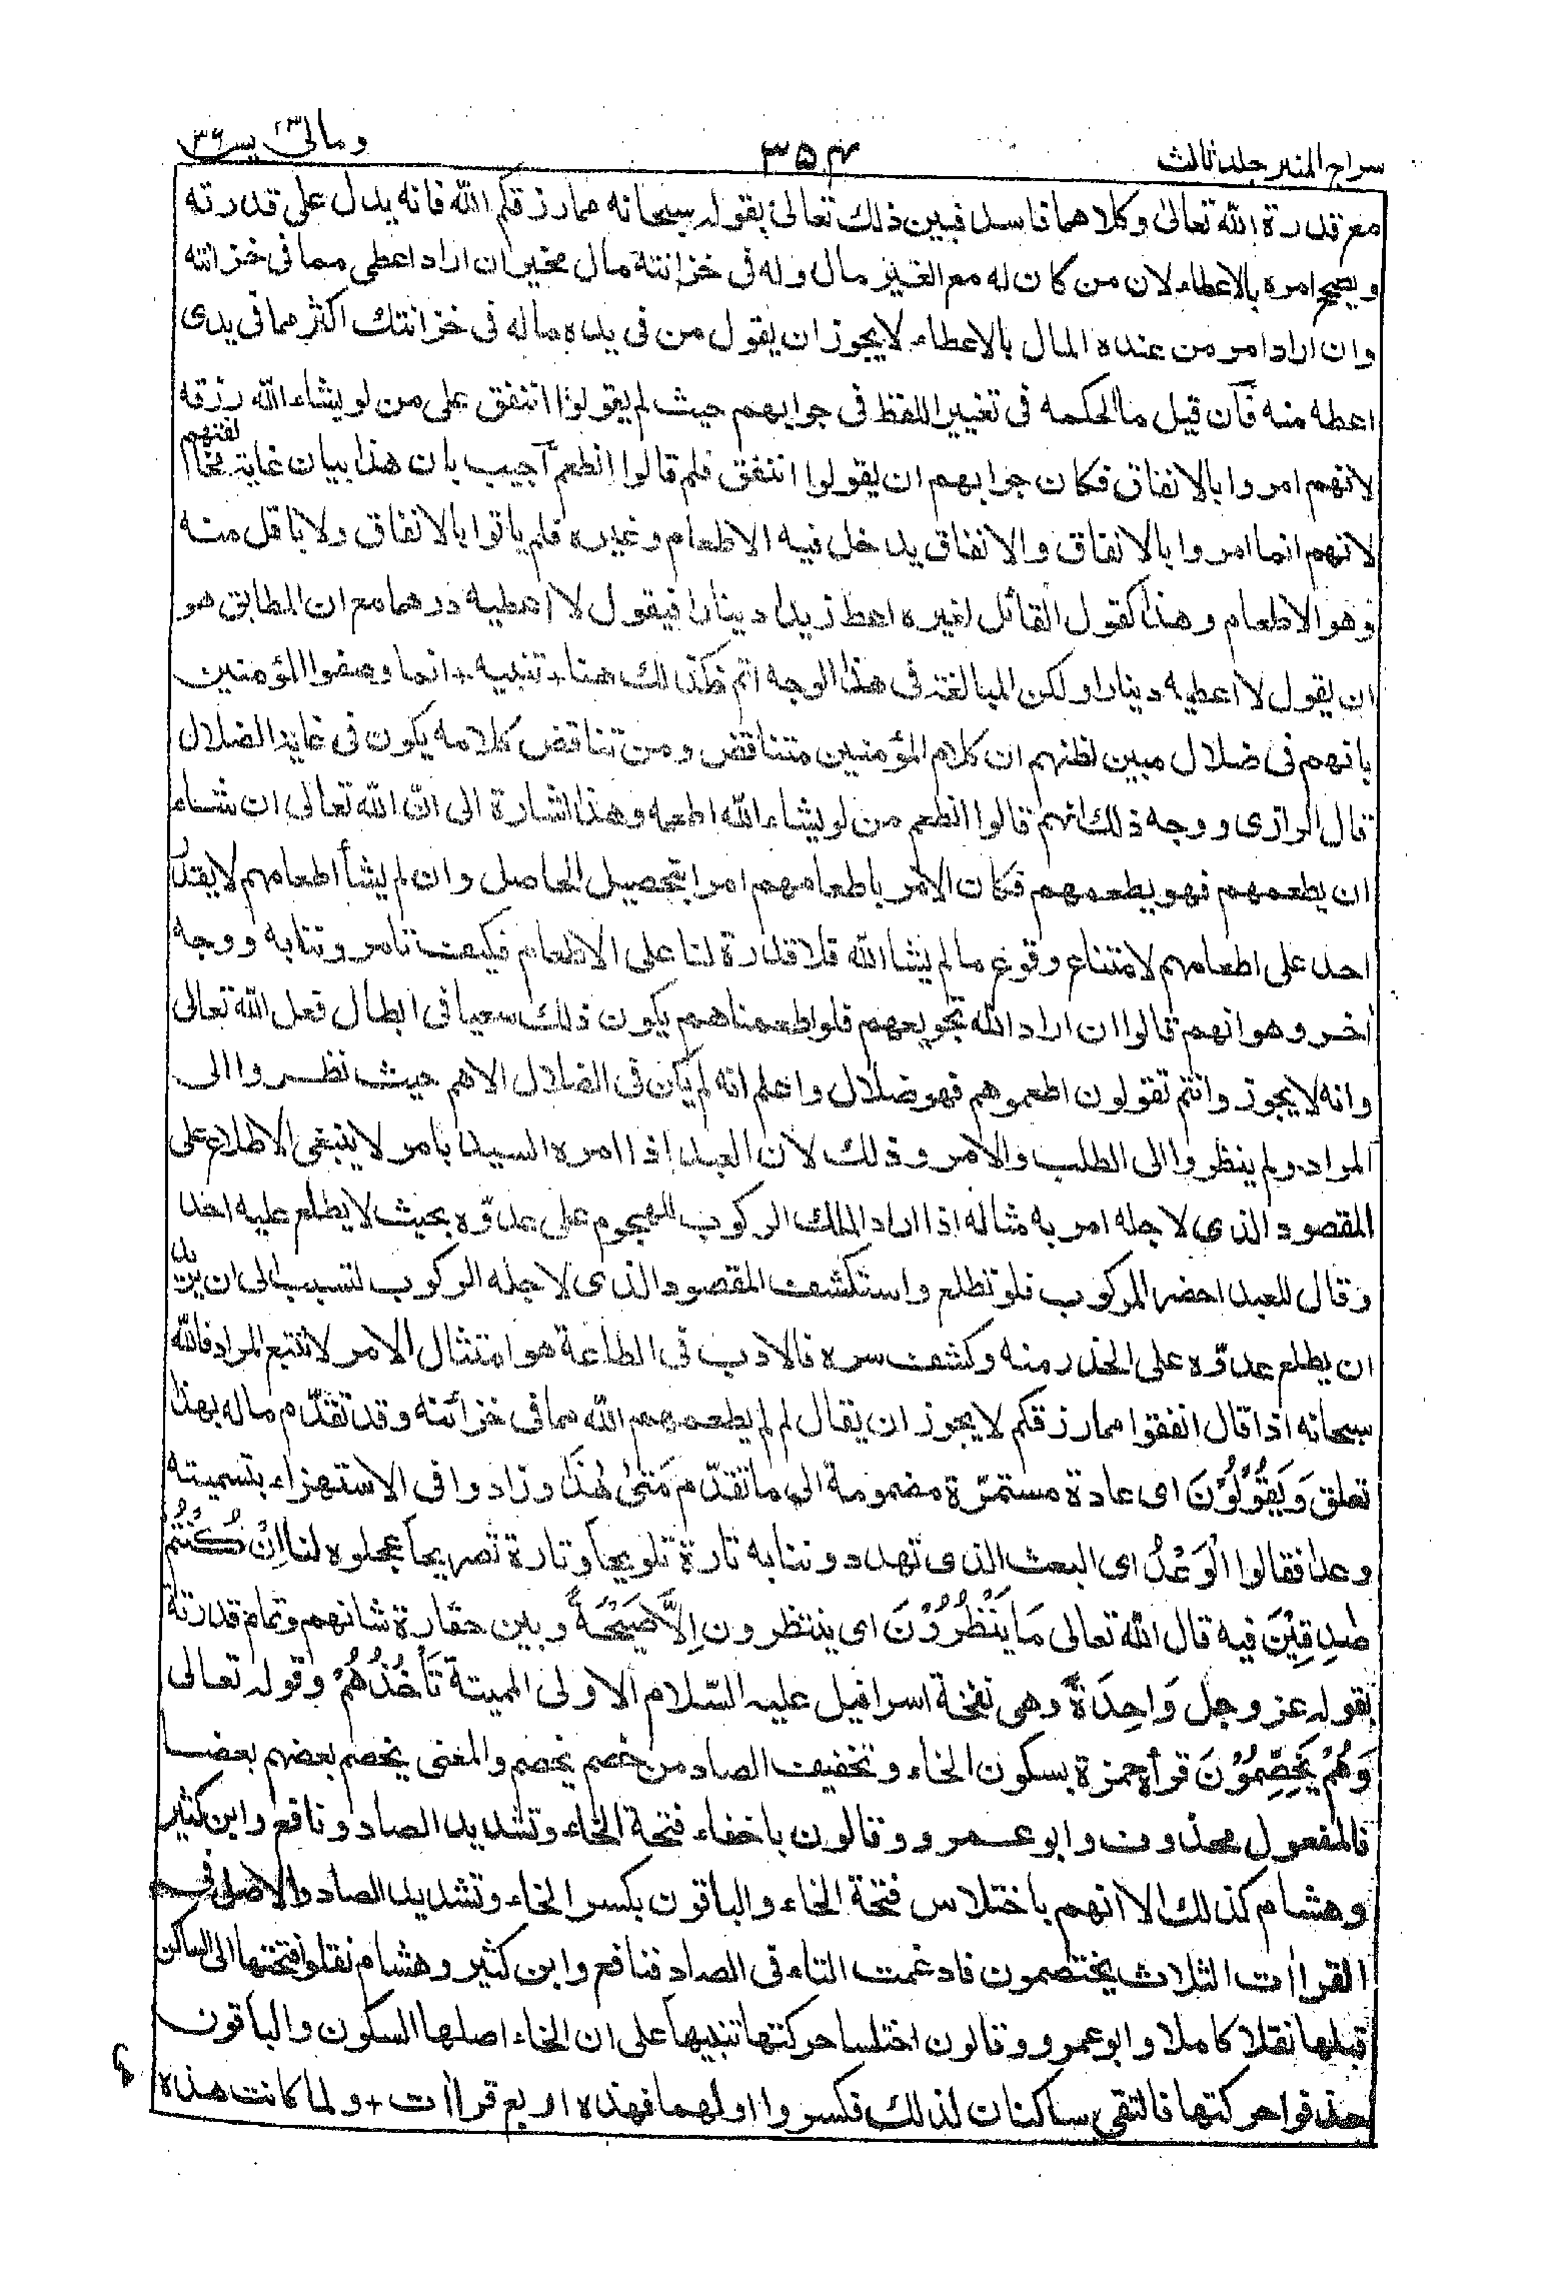 سراج المنير جلد ثالث
٣٥٤
ومالى ٢٣ يس ٣٦
مع قدرة الله تعالى وكلاهما فاسد فبين ذلك تعالى بقوله سبحانه مما رزقكم الله فانه يدل على قدرته
ويصحح امره بالاعطاء لان من كان له مع الغير مال وله فى خزانته مال مخير ان اراد اعطى مما فى خزانته
وان اراد امر من عنده المال بالاعطاء لا يجوز ان يقول من فى يده ماله فى خزانتك اكثر مما فى يدى
اعطه منه فان قيل ما الحكمة فى تغيير اللفظ فى جوابهم حيث لم يقولوا اننفق على من لو يشاء الله رزقه
لانهم امروا بالانفاق فكان جوابهم ان يقولوا اننفق فلم قالوا انطعم اجيب بان هذا بيان غاية مخالفتهم
لانهم انما امروا بالانفاق والانفاق يدخل فيه الاطعام وغيره فلم ياتوا بالانفاق ولا باقل منه
وهو الاطعام وهذا كقول القائل لغيره اعط زيدا دينارا فيقول لا اعطيه درهما مع ان المطابق هو
ان يقول لا اعطيه دينارا ولكن المبالغة فى هذا الوجه اتم فكذلك هنا + تنبيه + انما وصفوا المؤمنين
بانهم فى ضلال مبين لظنهم ان كلام المؤمنين متناقض ومن تناقض كلامه يكون فى غاية الضلال
قال الرازى ووجه ذلك انهم قالوا انطعم من لو يشاء الله اطعمه وهذا اشارة الى ان الله تعالى ان شاء
ان يطعمهم فهو يطعمهم فكان الامر باطعامهم امرا بتحصيل الحاصل وان لم يشأ اطعامهم لا يقدر
احد على اطعامهم لامتناع وقوع ما لم يشا الله فلا قدرة لنا على الاطعام فكيف تامرونا به ووجه
اخر وهو انهم قالوا ان اراد الله تجويعهم فلو اطعمناهم يكون ذلك سعيا فى ابطال فعل الله تعالى
وانه لا يجوز وانتم تقولون اطعموهم فهو ضلال واعلم انه لم يكن فى الضلال الا هم حيث نظروا الى
المراد ولم ينظروا الى الطلب والامر وذلك لان العبد اذا امره السيد بامر لا ينبغى الاطلاع على
المقصود الذى لاجله امر به مثاله اذا اراد الملك الركوب للهجوم على عدوّه بحيث لا يطلع عليه احد
وقال للعبد احضر المركوب فلو تطلع واستكشف المقصود الذى لاجله الركوب لنسب الى ان يريد
ان يطلع عدوّه على الحذر منه وكشف سره فالادب فى الطاعة هو امتثال الامر لا تتبع المراد فالله
سبحانه اذا قال انفقوا مما رزقكم لا يجوز ان يقال لم لم يطعمهم الله مما فى خزائنه وقد تقدّم ماله بهذا
تعلق وَيَقُوْلُوْنَ اى عادة مستمرّة مضمومة الى ما تقدّم مَتٰى هٰذَا وزادوا فى الاستهزاء بتسميته
وعدا فقالوا الْوَعْدُ اى البعث الذى تهددوننا به تارة تلويحاً وتارة تصريحاً عجلوه لنا اِنْ كُنْتُمْ
صٰدِقِيْنَ فيه قال الله تعالى مَا يَنْظُرُوْنَ اى ينتظرون اِلَّا صَيْحَةً وبين حقارة شانهم وتمام قدرته
بقوله عز وجل وَاحِدَةً وهى نفخة اسرافيل عليه السّلام الاولى المميتة تَأْخُذُهُمْ وقوله تعالى
وَهُمْ يَخِصِّمُوْنَ قرأه حمزة بسكون الخاء وتخفيف الصاد من خصم يخصم والمعنى يخصم بعضهم بعضا
فالمفعول محذوف وابو عمرو وقالون باخفاء فتحة الخاء وتشديد الصاد ونافع وابن كثير
وهشام كذلك الا انهم باختلاس فتحة الخاء والباقون بكسر الخاء وتشديد الصاد والاصل فى
القراات الثلاث يختصمون فادغمت التاء فى الصاد فنافع وابن كثير وهشام نقلوا فتحتها الى الساكن
قبلها نقلا كاملا وابو عمرو وقالون اختلسا حركتها تنبيها على ان الخاء اصلها السكون والباقون
حذفوا حركتها فالتقى ساكنان لذلك فكسروا اولهما فهذه اربع قراات + ولما كانت هذه